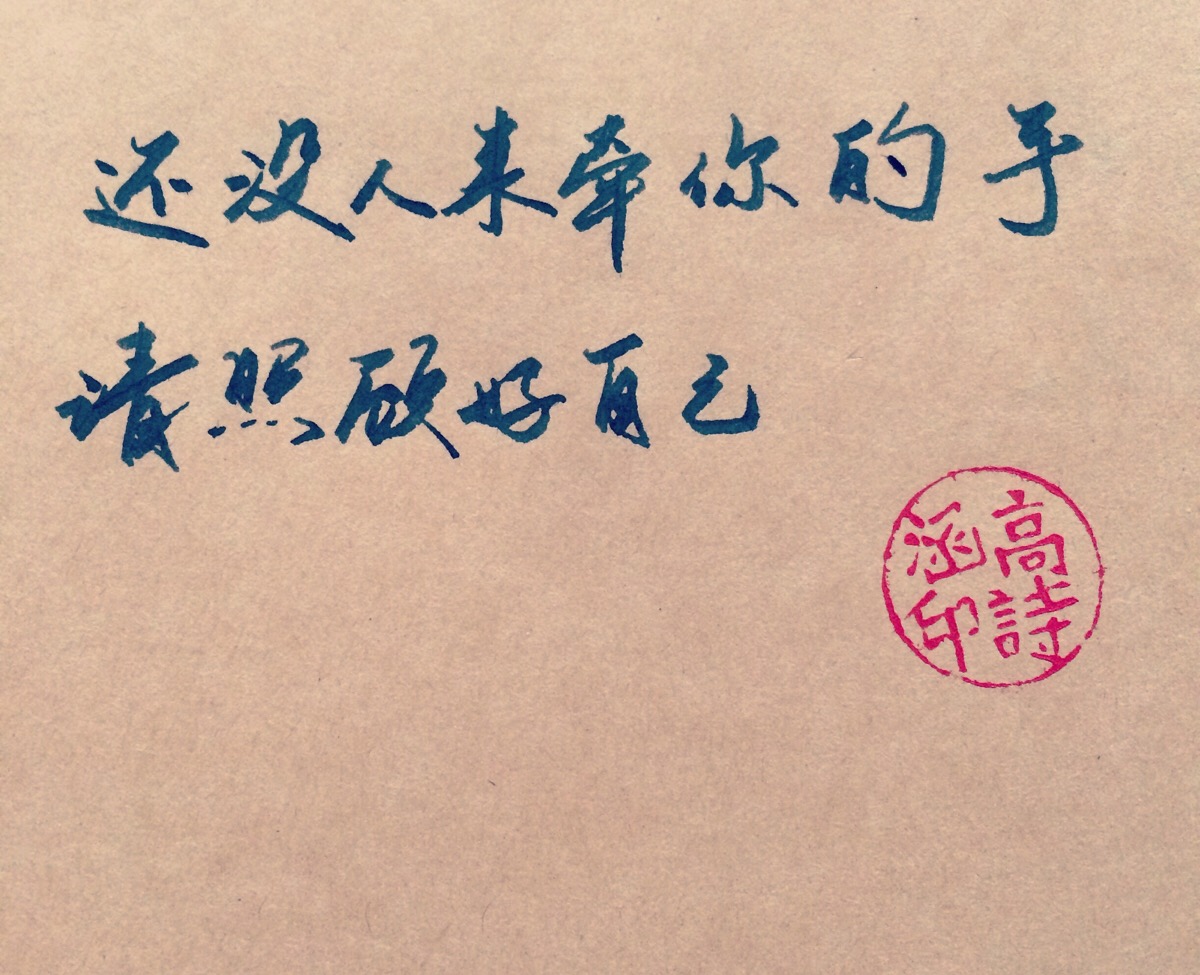 还没人来牵你的手
请照顾好自己
高詩
涵印